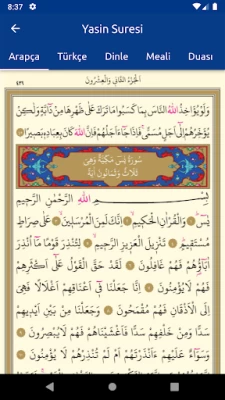 8:37
Yasin Suresi
Arapça Türkçe Dinle Meali Duası
اَلْجُزْءُ الثَّانِي وَالْعِشْرُونَ
وَلَوْ يُؤَاخِذُ اللّٰهُ النَّاسَ بِمَا كَسَبُوا مَا تَرَكَ عَلٰى ظَهْرِهَا مِنْ دَٓابَّةٍ وَلٰكِنْ
يُؤَخِّرُهُمْ اِلٰٓى اَجَلٍ مُسَمًّىۚ فَاِذَا جَٓاءَ اَجَلُهُمْ فَاِنَّ اللّٰهَ كَانَ بِعِبَادِهِ بَصِيرًا
سُورَةُ يٰسٓ مَكِّيَّةٌ وَهِيَ
ثَلَاثٌ وَثَمَانُونَ اٰيَةً
بِسْمِ اللّٰهِ الرَّحْمٰنِ الرَّحِيمِ
يٰسٓ وَالْقُرْاٰنِ الْحَكِيمِ اِنَّكَ لَمِنَ الْمُرْسَلِينَ عَلٰى صِرَاطٍ
مُسْتَقِيمٍ تَنْزِيلَ الْعَزِيزِ الرَّحِيمِ لِتُنْذِرَ قَوْمًا مَٓا اُنْذِرَ
اٰبَٓاؤُهُمْ فَهُمْ غَافِلُونَ لَقَدْ حَقَّ الْقَوْلُ عَلٰٓى اَكْثَرِهِمْ
فَهُمْ لَا يُؤْمِنُونَ اِنَّا جَعَلْنَا فِٓي اَعْنَاقِهِمْ اَغْلَالًا فَهِيَ
اِلَى الْاَذْقَانِ فَهُمْ مُقْمَحُونَ وَجَعَلْنَا مِنْ بَيْنِ اَيْدِيهِمْ
سَدًّا وَمِنْ خَلْفِهِمْ سَدًّا فَاَغْشَيْنَاهُمْ فَهُمْ لَا يُبْصِرُونَ
وَسَوَٓاءٌ عَلَيْهِمْ ءَاَنْذَرْتَهُمْ اَمْ لَمْ تُنْذِرْهُمْ لَا يُؤْمِنُونَ